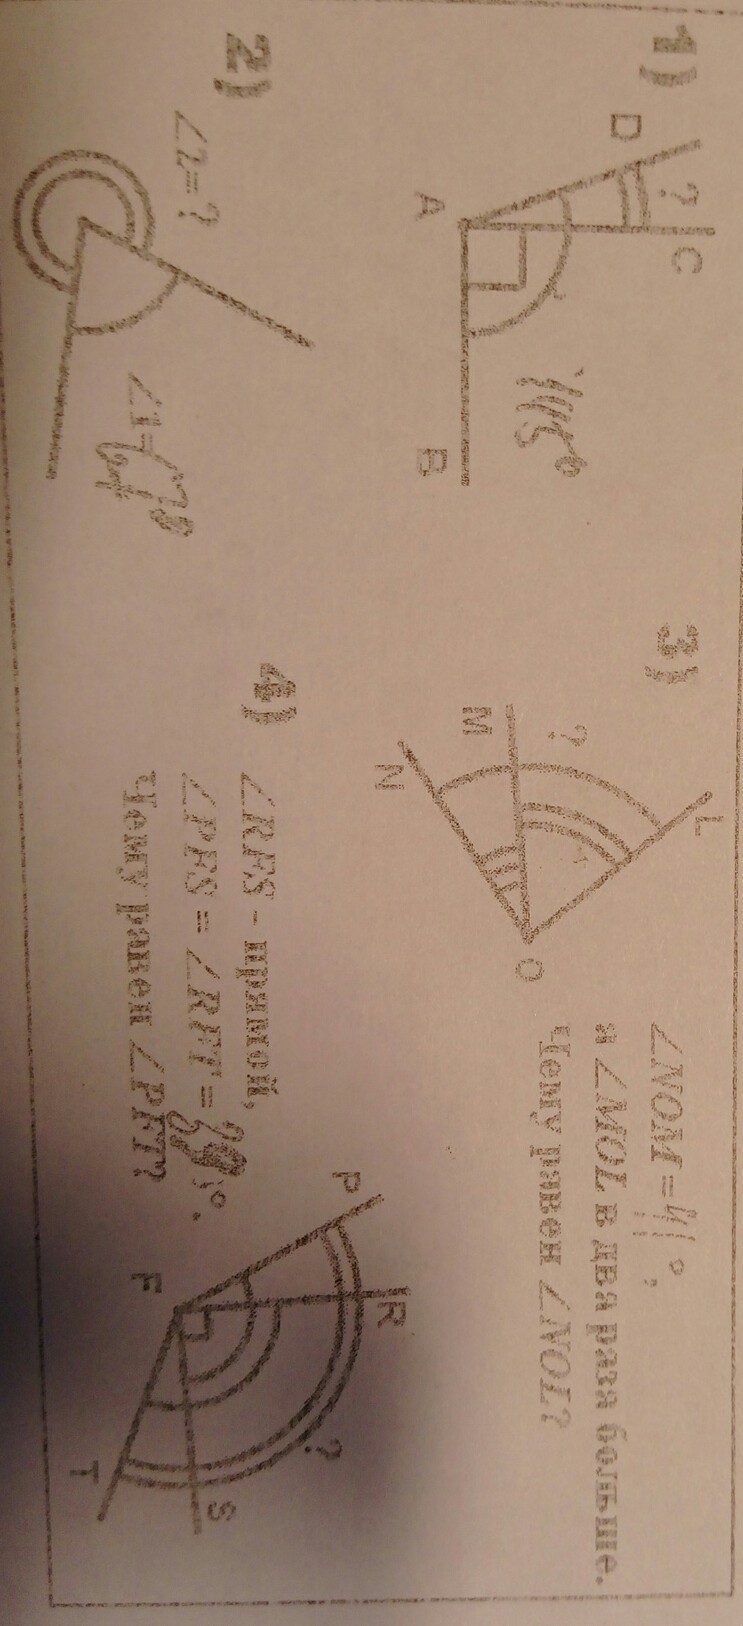 1)
D
?
C
A
B
115°
2)
∠2=?
∠1=
3)
L
?
M
N
O
∠NOM=41°,
а ∠MOL в два раза больше.
Чему равен ∠NOL?
4)
∠RFS - прямой,
∠PFS = ∠RFT = °.
Чему равен ∠PFT?
P
R
?
F
S
T